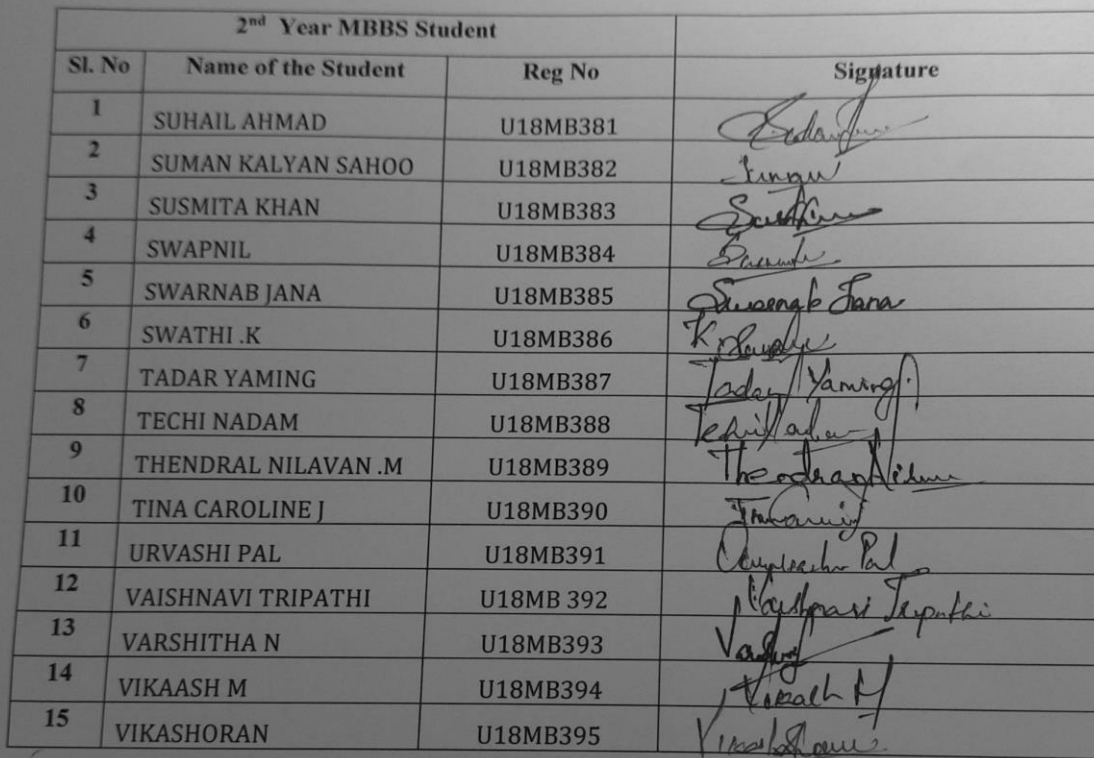 2nd Year MBBS Student
Sl. No Name of the Student Reg No Signature
1 SUHAIL AHMAD U18MB381
2 SUMAN KALYAN SAHOO U18MB382
3 SUSMITA KHAN U18MB383
4 SWAPNIL U18MB384
5 SWARNAB JANA U18MB385 Jana
6 SWATHI .K U18MB386 K
7 TADAR YAMING U18MB387 Tadar Yaming
8 TECHI NADAM U18MB388 Techi
9 THENDRAL NILAVAN .M U18MB389
10 TINA CAROLINE J U18MB390
11 URVASHI PAL U18MB391 Pal
12 VAISHNAVI TRIPATHI U18MB 392 Vaishnavi Tripathi
13 VARSHITHA N U18MB393
14 VIKAASH M U18MB394 M
15 VIKASHORAN U18MB395